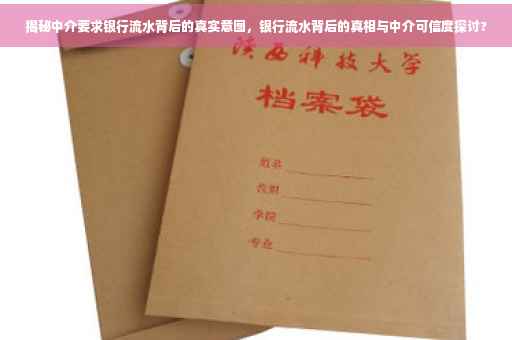 揭秘中介要求银行流水背后的真实意图，银行流水背后的真相与中介可信度探讨？
陕西科技大学
档案袋
姓名
学院
专业